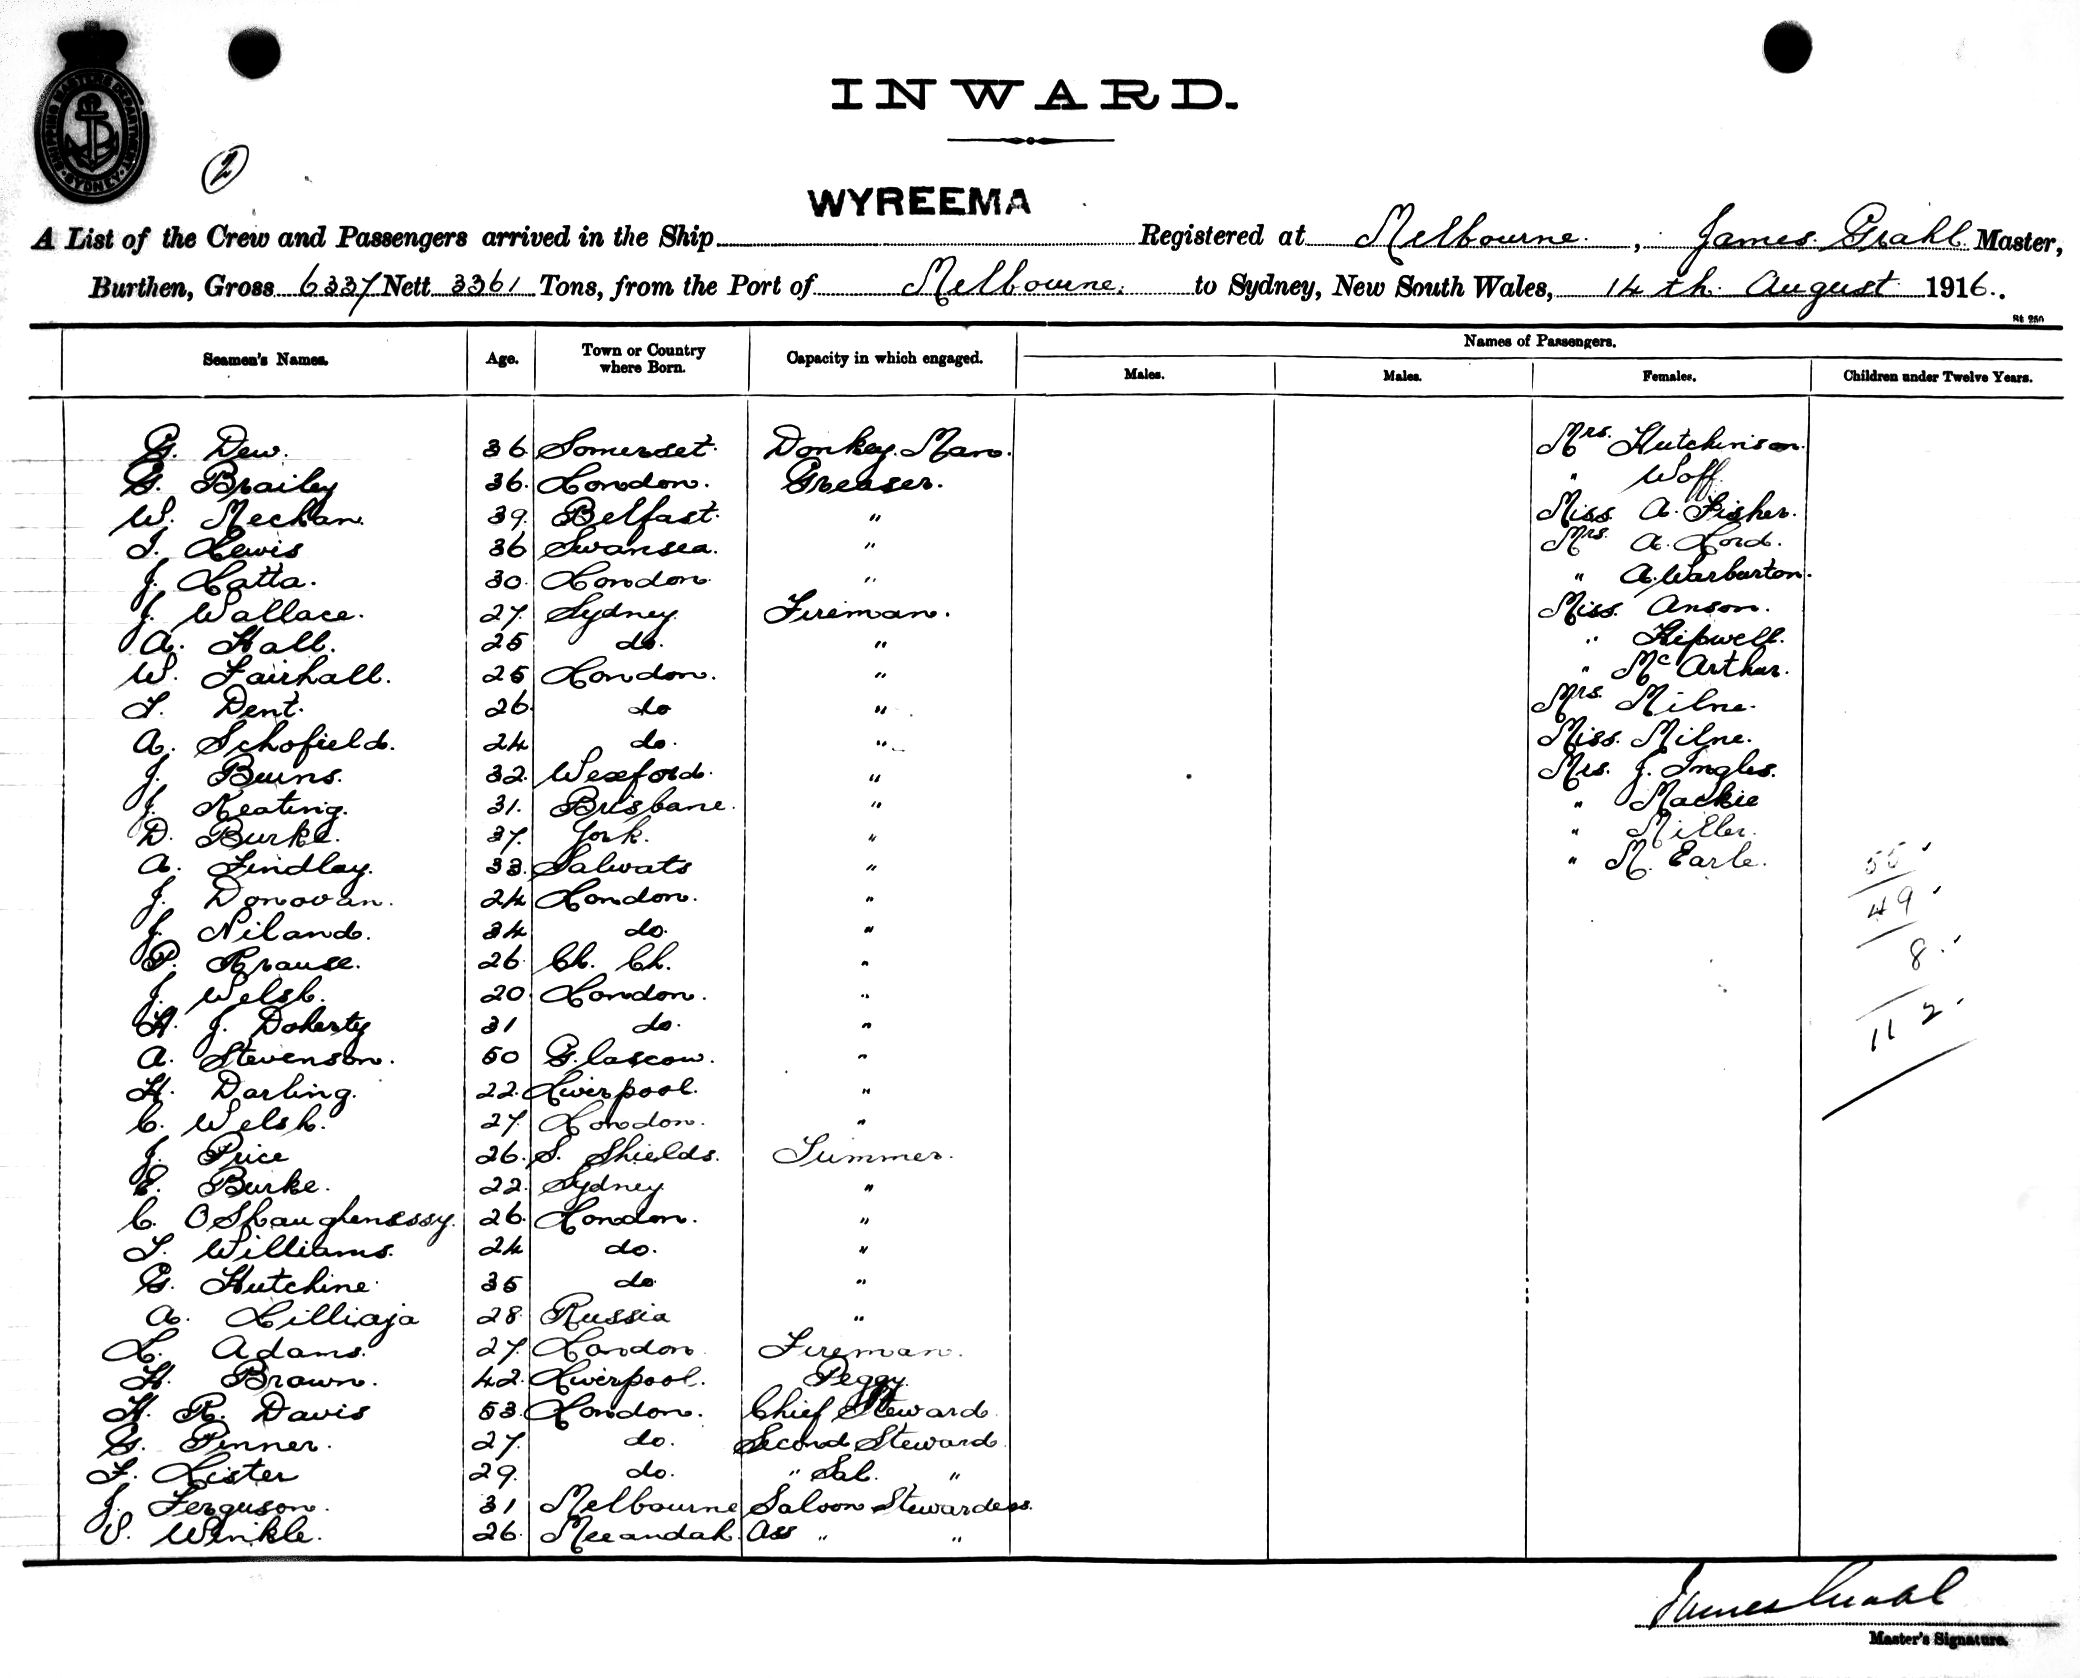 SHIPPING MASTERS DEPARTMENT SYDNEY
2
INWARD.
WYREEMA
A List of the Crew and Passengers arrived in the Ship Registered at Melbourne. , James Grahl Master,
Burthen, Gross 6337 Nett 3361 Tons, from the Port of Melbourne. to Sydney, New South Wales, 14th August 1916.
Seamen's Names. Age. Town or Country where Born. Capacity in which engaged. Names of Passengers.
Males. Males. Females. Children under Twelve Years.
G. Dew. 36 Somerset. Donkey Man. Mrs. Hutchinson.
G. Brailey 36. London. Greaser. " Woff.
W. Mechan. 39. Belfast. " Miss A. Fisher.
T. Lewis 36 Swansea. " Mrs. A. Lord.
J. Latta. 30. London " " A. Warburton.
J. Wallace. 27. Sydney. Fireman. Miss. Anson.
A. Hall. 25 do. " " Hipwell.
W. Fairhall. 25 London. " " McArthur.
T. Dent. 26. do " Mrs. Milne.
A. Schofield. 24 do. " Miss. Milne.
J. Burns. 32. Wexford. " Mrs. J. Ingles.
J. Keating. 31. Brisbane. " " Mackie
D. Burke. 37. York. " " Miller.
A. Findlay. 33. Salwats " " M. Earle.
55
J. Donovan. 24 London. "
49
J. Niland. 34 do. "
P. Krause. 26. Ch. Ch. "
8.
J. Welsh. 20 London. "
H. J. Doherty 31 do. "
112.
A. Stevenson. 50 Glascow. "
H. Darling. 22. Liverpool. "
C. Welsh. 27. London. "
J. Price 26. S. Shields. Trimmer.
E. Burke. 22. Sydney "
C. OShaughenessy. 26. London. "
T. Williams. 24 do. "
G. Hutchine 35 do "
A. Lilliaja 28. Russia "
L. Adams. 27. London. Fireman.
H. Brown. 42. Liverpool. Peggy.
H. R. Davis 53. London. Chief Steward
G. Pinner. 27. do. Second Steward
F. Lister 29. do. " Sal. "
J. Ferguson. 31 Melbourne Saloon Stewardess.
V. Winkle. 26. Meeandah. Ass " "
James Grahl
Master's Signature.